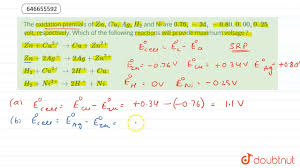 646655592
The oxidation potentials of Zn, Cu, Ag, H₂ and Ni are 0.76, − 34, − 0.80, 0.00, 0. 25
volt, respectively. Which of the following reactions will provide maximum voltage ?
Zn + Cu²⁺ → Cu + Zn²⁺
Zn +
H₂ + Cu²⁺ → 2H⁺ + Cu
H₂ +
E°cell =
SRP
E°Zn = -0.76V E°Cu = +0.34V E°Ag = +0.80
E°H = 0V E°Ni = -0.25V
(a) E°cell = E°Cu - E°Zn = +0.34 - (-0.76) = 1.1V
(b) E°cell = E°Ag - E°Zn =
doubtnut